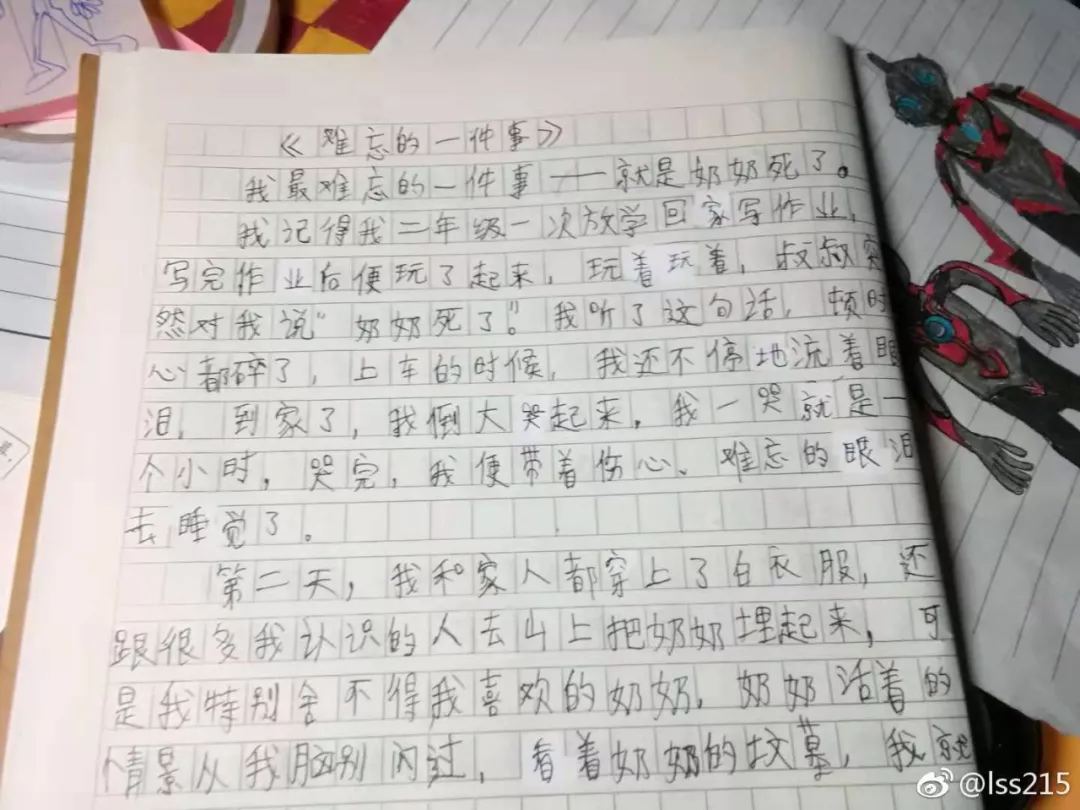 《难忘的一件事》
我最难忘的一件事——就是奶奶死了。
我记得我二年级一次放学回家写作业，
写完作业后便玩了起来，玩着玩着，叔叔突
然对我说“奶奶死了”。我听了这句话，顿时
心都碎了，上车的时候，我还不停地流着眼
泪，到家了，我倒大哭起来，我一哭就是一
个小时，哭完，我便带着伤心、难忘的眼泪
去睡觉了。
第二天，我和家人都穿上了白衣服，还
跟很多我认识的人去山上把奶奶埋起来，可
是我特别舍不得我喜欢的奶奶，奶奶活着的
情景从我脑别闪过，看着奶奶的坟墓，我就
@lss215